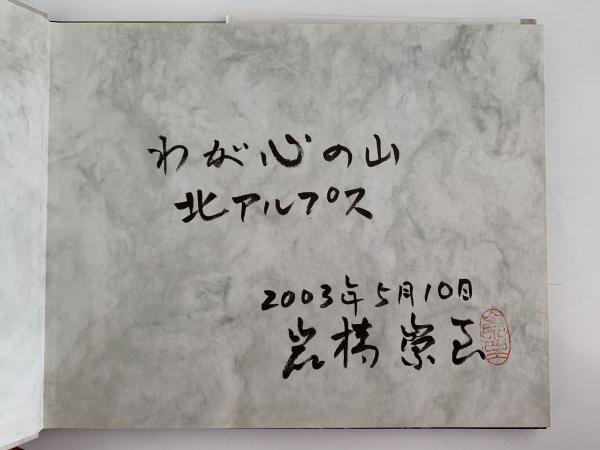 わが心の山
北アルプス
2003年5月10日
岩橋崇至